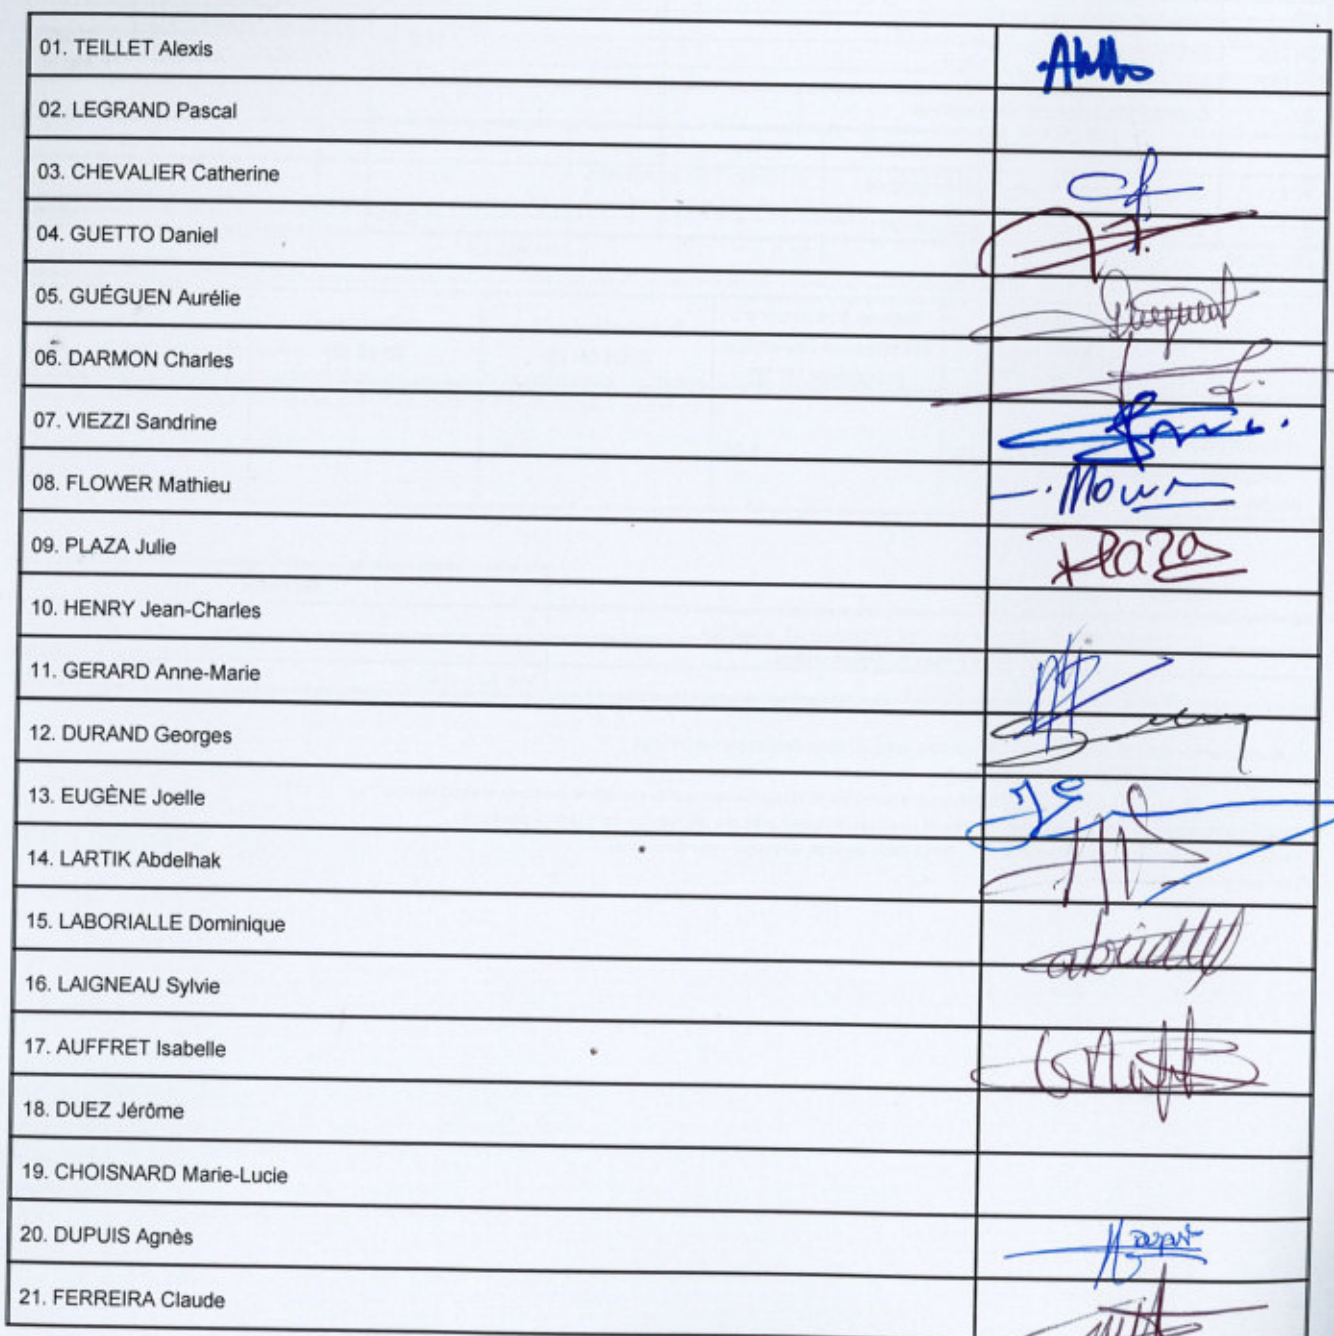 01. TEILLET Alexis
02. LEGRAND Pascal
03. CHEVALIER Catherine
04. GUETTO Daniel
05. GUÉGUEN Aurélie
06. DARMON Charles
07. VIEZZI Sandrine
08. FLOWER Mathieu
09. PLAZA Julie Plaza
10. HENRY Jean-Charles
11. GERARD Anne-Marie
12. DURAND Georges
13. EUGÈNE Joelle
14. LARTIK Abdelhak
15. LABORIALLE Dominique
16. LAIGNEAU Sylvie
17. AUFFRET Isabelle
18. DUEZ Jérôme
19. CHOISNARD Marie-Lucie
20. DUPUIS Agnès
21. FERREIRA Claude